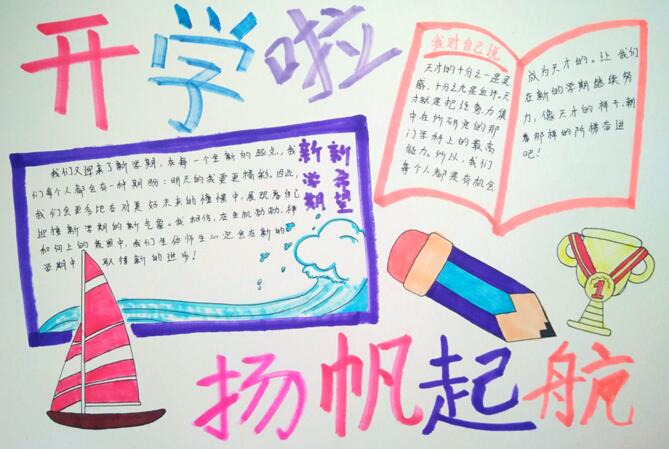 开学啦
我们又迎来了新学期，在每一个全新的起点，我
们每个人都会有一种期盼：明天的我要更精彩。因此，
我们会更多地在对美好未来的憧憬中，展现着自己
迎接新学期的新气象。我相信，在生机勃勃、祥
和向上的氛围中，我们全体师生必定会在新的
学期中 取得新的进步！
新学期
新希望
我对自己说
天才的十分之一是灵
感，十分之九是血汗。天
才就是把注意力集
中在所研究的那
门学科上的最高
能力。所以，我们
每个人都是有机会
成为天才的。让我们
在新的学期继续努
力，像天才的样子，朝
着那样的阶梯奋进
吧！
1
扬帆起航